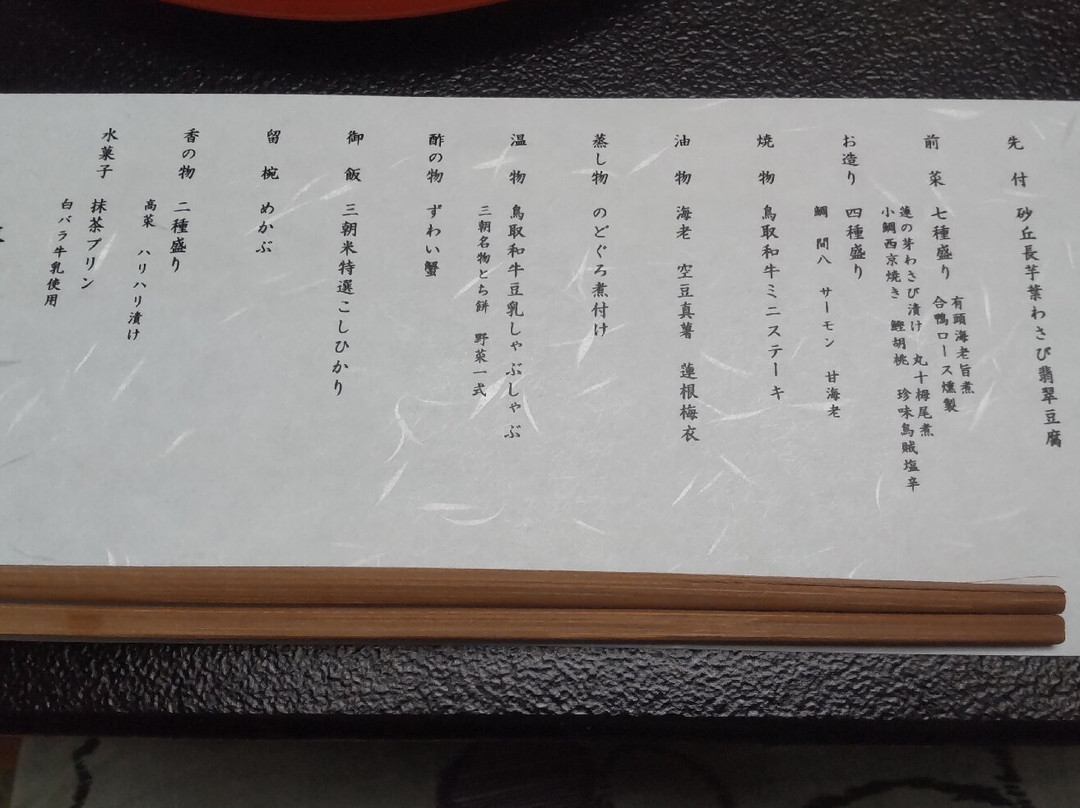 先付 砂丘長芋葉わさび翡翠豆腐
前菜 七種盛り
有頭海老旨煮
合鴨ロース燻製
蓮の芽わさび漬け 丸十梔尾煮
小鯛西京焼き 鰹胡桃 珍味烏賊塩辛
お造り 四種盛り
鯛 間八 サーモン 甘海老
焼物 鳥取和牛ミニステーキ
油物 海老 空豆真薯 蓮根梅衣
蒸し物 のどぐろ煮付け
温物 鳥取和牛豆乳しゃぶしゃぶ
三朝名物とち餅 野菜一式
酢の物 ずわい蟹
御飯 三朝米特選こしひかり
留椀 めかぶ
香の物 二種盛り
高菜 ハリハリ漬け
水菓子 抹茶プリン
白バラ牛乳使用